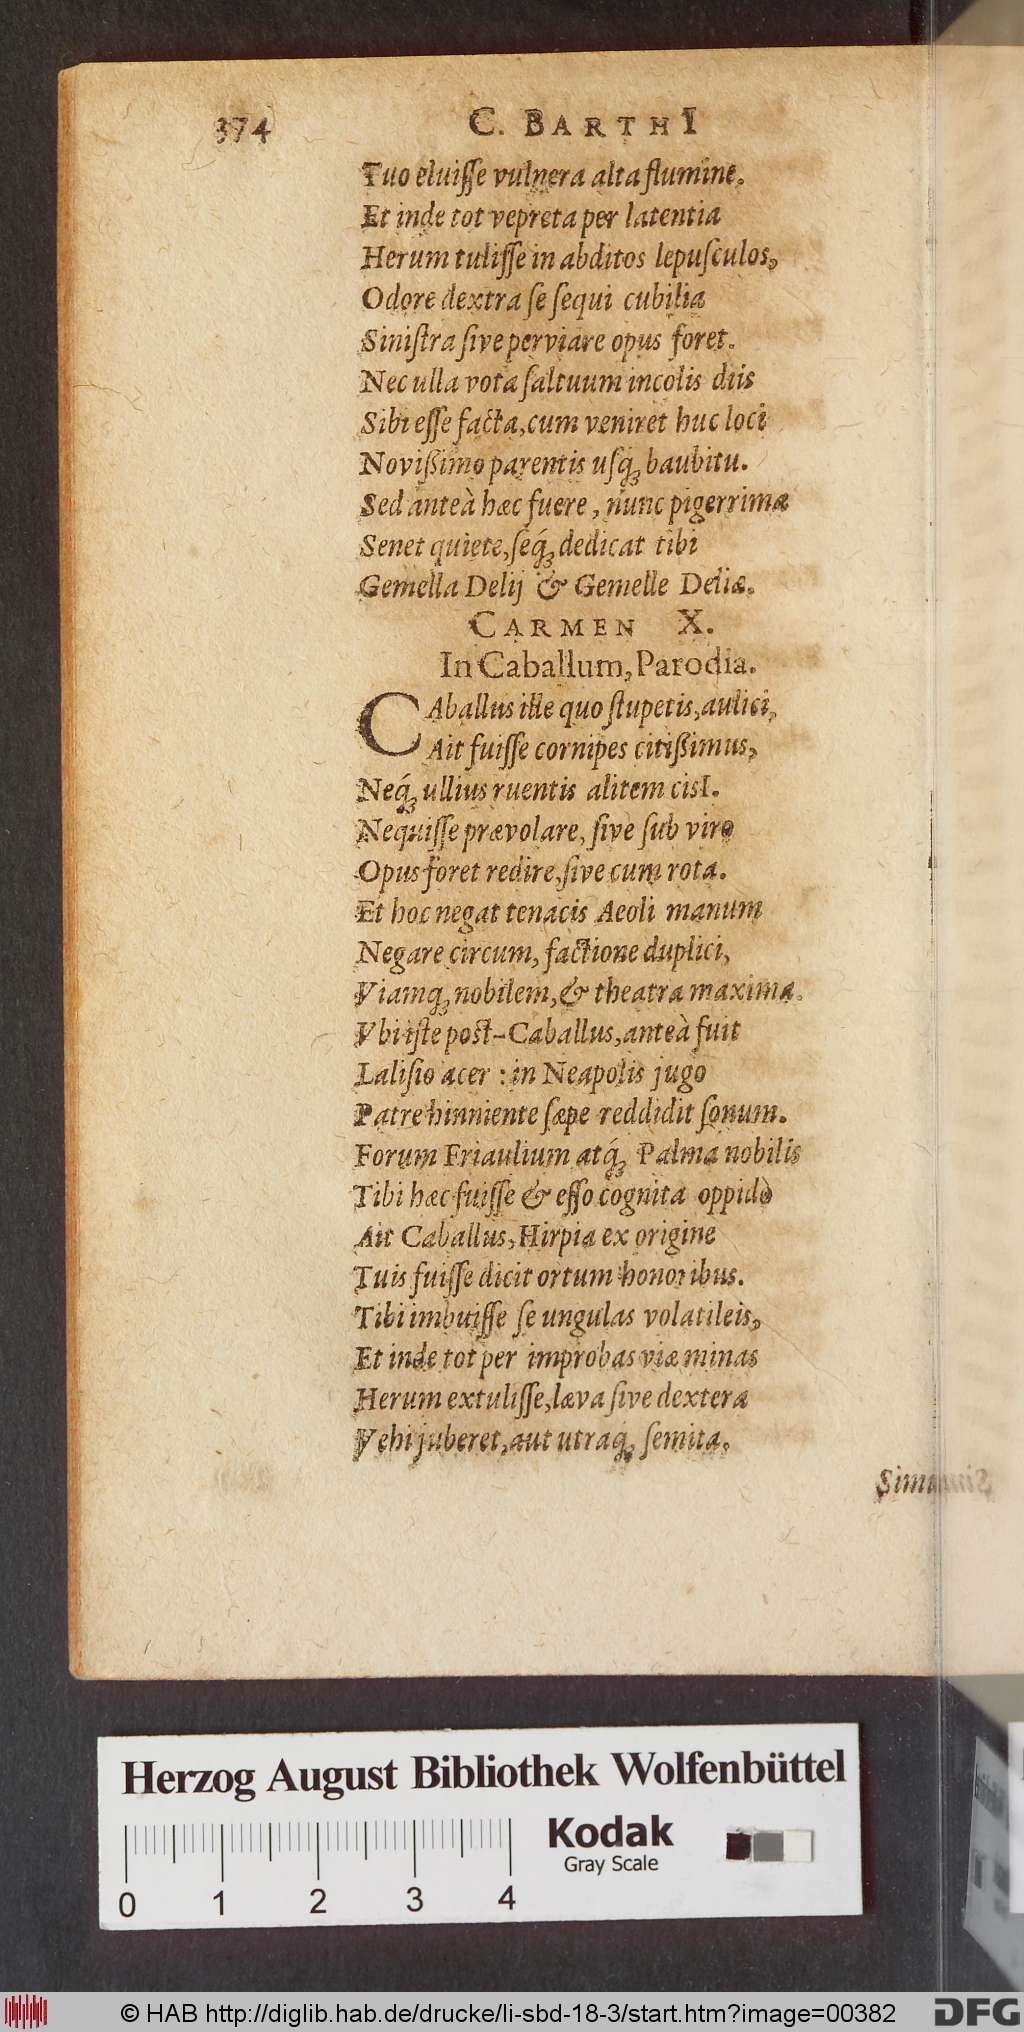 374
C. BARTHI
Tuo eluisse vulnera alta flumine.
Et inde tot vepreta per latentia
Herum tulisse in abditos lepusculos,
Odore dextra se sequi cubilia
Sinistra sive perviare opus foret.
Nec ulla vota saltuum incolis diis
Sibi esse facta, cum veniret huc loci
Novißimo parentis usq́; baubitu.
Sed anteà hæc fuere, nunc pigerrimæ
Senet quiete, seq́; dedicat tibi
Gemella Delij & Gemelle Deliæ.
CARMEN X.
In Caballum, Parodia.
CAballus ille quo stupetis, aulici,
Ait fuisse cornipes citißimus,
Neq́; ullius ruentis alitem cisI.
Nequisse prævolare, sive sub viro
Opus foret redire, sive cum rota.
Et hoc negat tenacis Aeoli manum
Negare circum, factione duplici,
Viamq; nobilem, & theatra maxima.
Vbi iste post-Caballus, anteà fuit
Lalisio acer : in Neapolis jugo
Patre hinniente sæpe reddidit sonum.
Forum Friaulium atq́; Palma nobilis
Tibi hæc fuisse & esso cognita oppidò
Ait Caballus, Hirpia ex origine
Tuis fuisse dicit ortum honoribus.
Tibi imbuisse se ungulas volatileis,
Et inde tot per improbas viæ minas
Herum extulisse, læva sive dextera
Vehi juberet, aut utraq; semita,
Simu
Herzog August Bibliothek Wolfenbüttel
Kodak
Gray Scale
0 1 2 3 4
© HAB http://diglib.hab.de/drucke/li-sbd-18-3/start.htm?image=00382
DFG